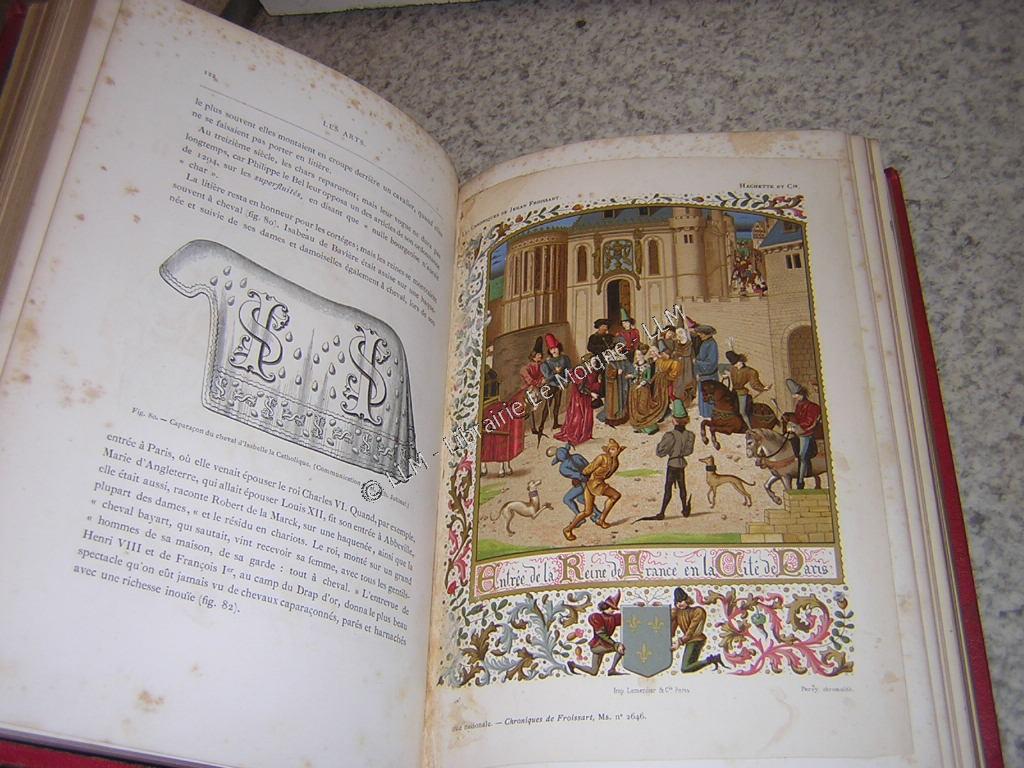 122
LES ARTS.
le plus souvent elles montaient en croupe derrière un cavalier, quand elles
ne se faisaient pas porter en litière.
Au treizième siècle, les chars reparurent; mais leur vogue ne dura pas
longtemps, car Philippe le Bel leur opposa un des articles de son ordonnance
de 1294 sur les superfluités, en disant que « nulle bourgeoise n'aura
« char ».
La litière resta en honneur pour les cortéges; mais les reines se montraient
souvent à cheval (fig. 80). Isabeau de Bavière était assise sur une haque-
née et suivie de ses dames et damoiselles également à cheval, lors de son
Fig. 80. — Caparaçon du cheval d'Isabelle la Catholique. (Communication
entrée à Paris, où elle venait épouser le roi Charles VI. Quand, par exemple,
Marie d'Angleterre, qui allait épouser Louis XII, fit son entrée à Abbeville,
elle était aussi, raconte Robert de la Marck, sur une haquenée, ainsi que la
plupart des dames, « et le résidu en chariots. Le roi, monté sur un grand
« cheval bayart, qui sautait, vint recevoir sa femme, avec tous les gentils-
« hommes de sa maison, de sa garde : tout à cheval. » L'entrevue de
Henri VIII et de François Ier, au camp du Drap d'or, donna le plus beau
spectacle qu'on eût jamais vu de chevaux caparaçonnés, parés et harnachés
avec une richesse inouïe (fig. 82).
CHRONIQUES DE JEHAN FROISSART
HACHETTE ET Cie
Entrée de la Reine de France en la Cité de Paris
Imp. Lemercier & Cie Paris
nationale. — Chroniques de Froissart, Ms. n° 2646.
© LLM - Librairie Le Moigne - LLM